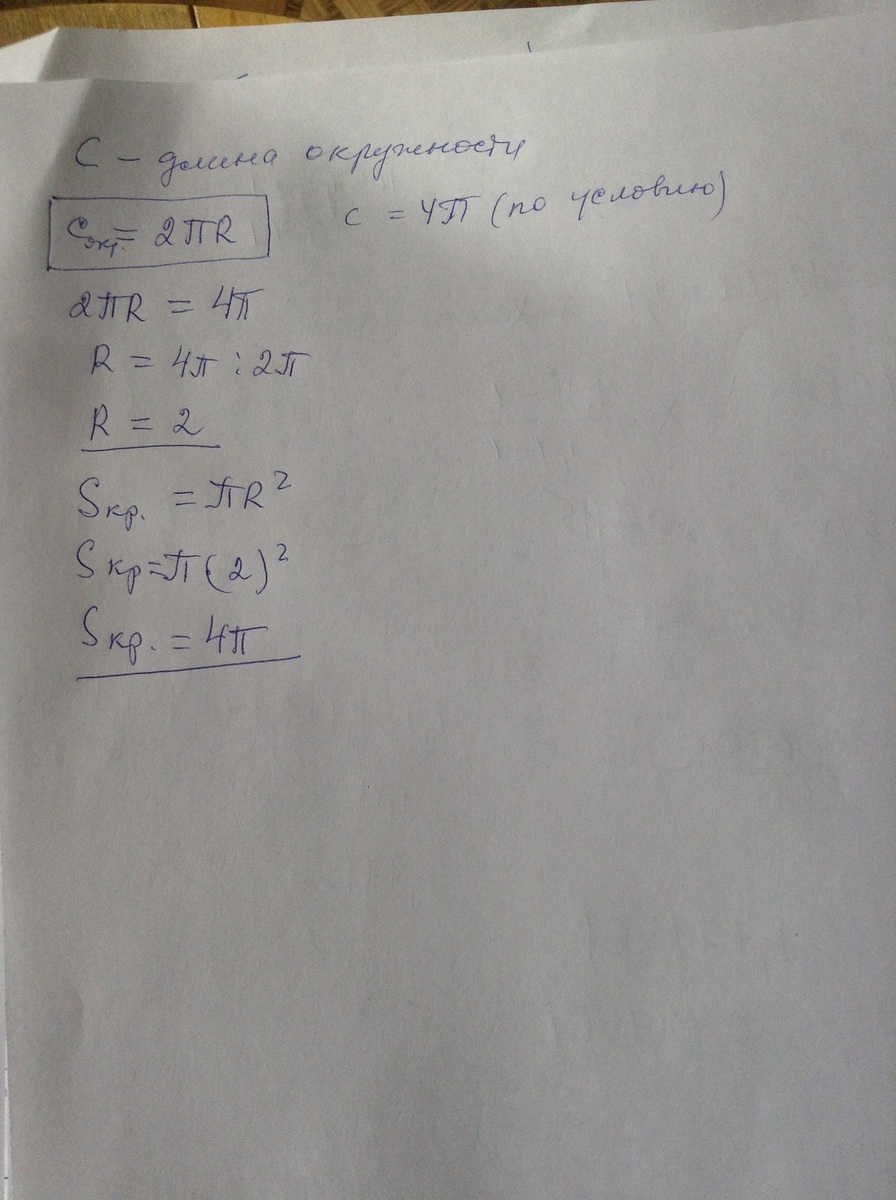 C – длина окружности
Cокр. = 2πR
C = 4π (по условию)
2πR = 4π
R = 4π : 2π
R = 2
Sкр. = πR²
Sкр = π(2)²
Sкр. = 4π